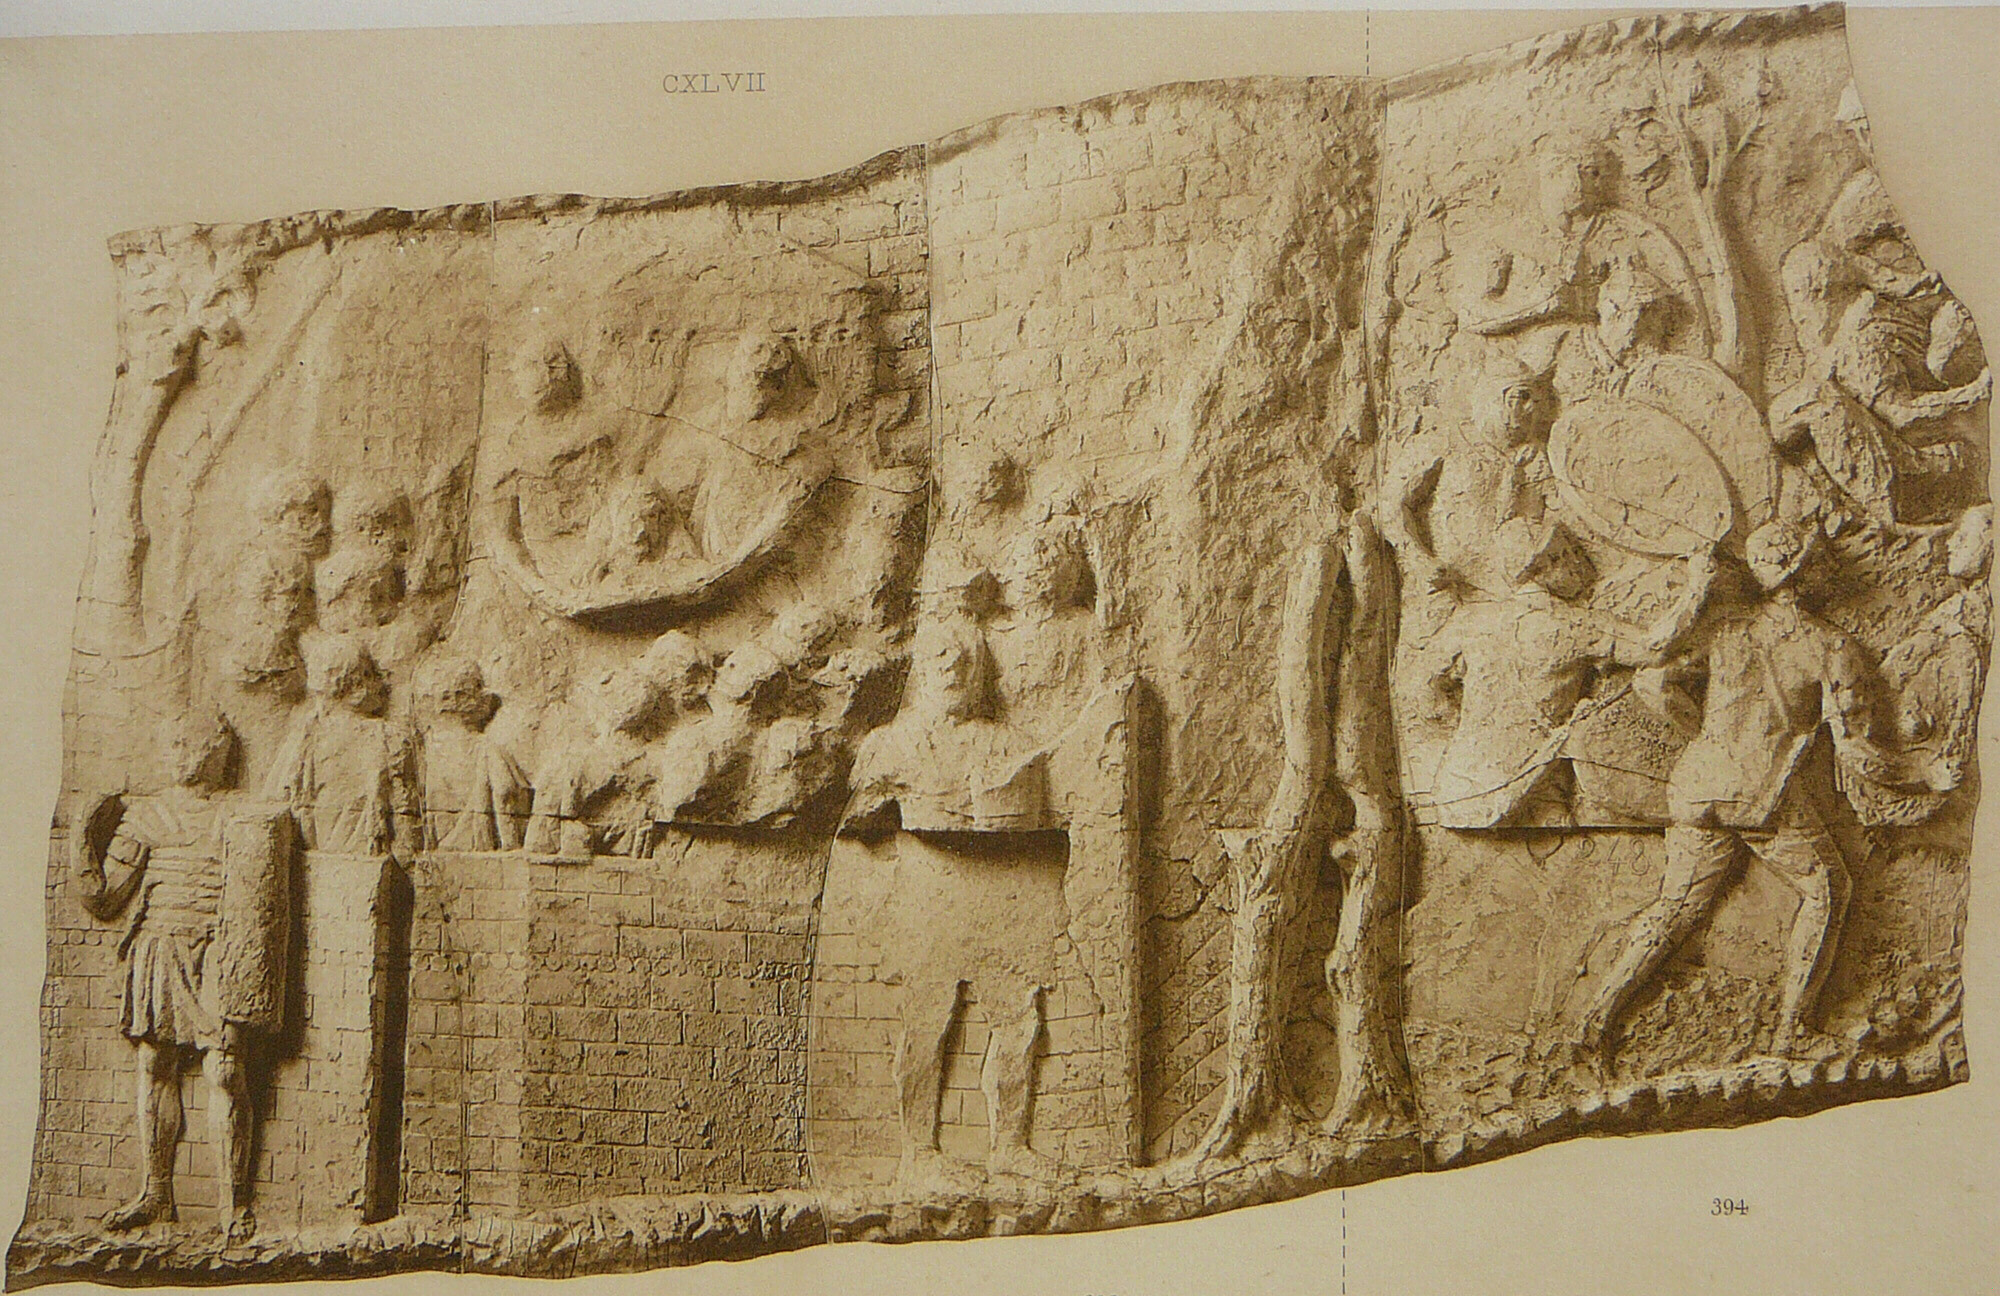 CXLVII
248
394